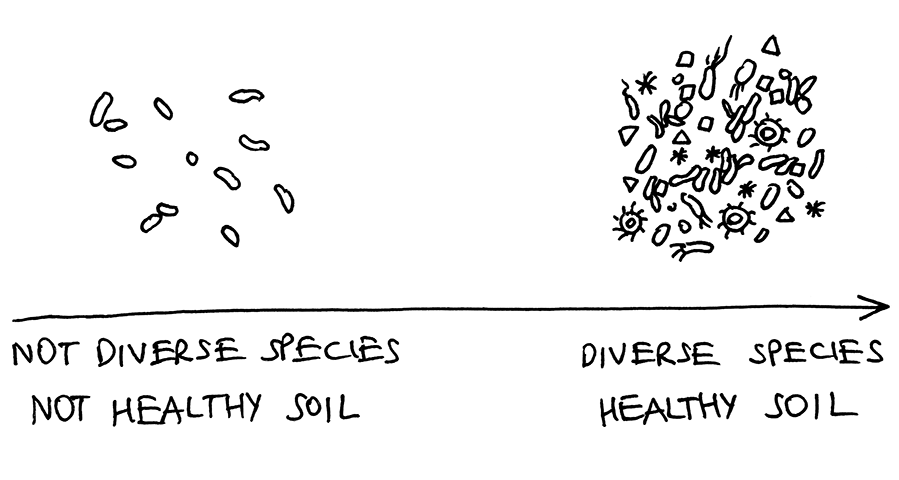 NOT DIVERSE SPECIES
NOT HEALTHY SOIL
DIVERSE SPECIES
HEALTHY SOIL